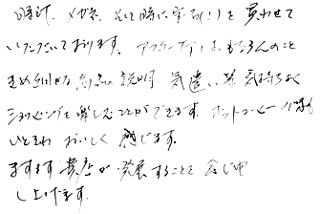 時計、メガネ、そして時に宝石(!)を買わせて
いただいております。アフターケアはもちろんのこと
きめ細かな商品の説明、気遣い等、気持ちよく
ショッピングを楽しむことができます。ホットコーヒーの味も
ひときわおいしく感じます。
ますます貴店が発展することを念じ申
し上げます。